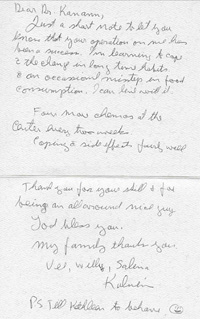 Dear Dr. Kunam,
Just a short note to let you
know that your operation on me has
been a success. I'm learning to cope
& the change in long time habits
& an occasional misstep in food
consumption. I can live with it.
Four more chemos at the
Center every two weeks.
Coping & side effects fairly well
Thank you for your skill & for
being an all around nice guy
God bless you.
My family thanks you
Vel, Willy, Salena
PS Tell Kathleen to behave